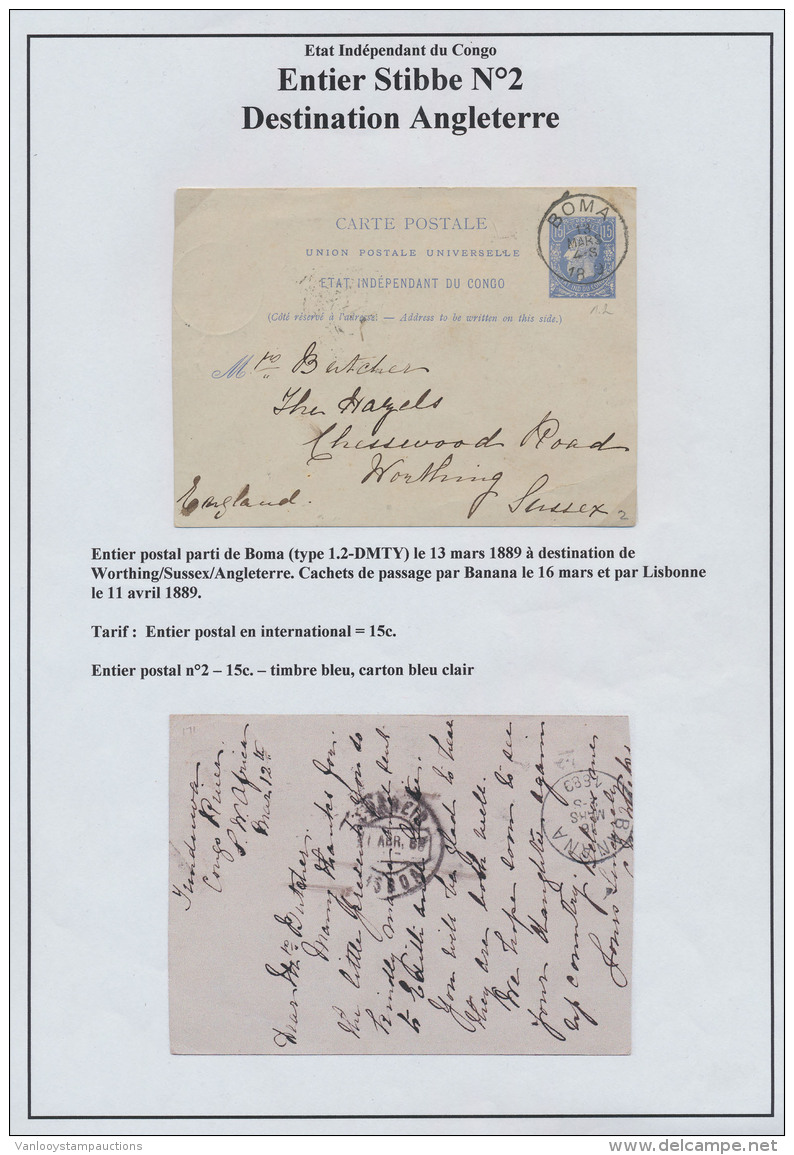 Etat Indépendant du Congo
Entier Stibbe N°2
Destination Angleterre
BOMA
13
MARS
4-S
18
15 15
CARTE POSTALE
UNION POSTALE UNIVERSELLE
ETAT INDÉPENDANT DU CONGO
(Côté réservé à l'adresse) — Address to be written on this side.)
Mrs Butcher
The Hazels
Chesswood Road
Worthing
Sussex
England.
2
Entier postal parti de Boma (type 1.2-DMTY) le 13 mars 1889 à destination de
Worthing/Sussex/Angleterre. Cachets de passage par Banana le 16 mars et par Lisbonne
le 11 avril 1889.
Tarif : Entier postal en international = 15c.
Entier postal n°2 – 15c. – timbre bleu, carton bleu clair
171
Congo River
S W Africa
Mar 12th
Dear Mrs Butcher
Many thanks for
the little presents you so
kindly made and sent
to Edith and
You will be glad to hear
they are both well.
We hope soon to see
your daughter again
up country.
Yours sincerely
ABR. 89
LISBOA
BANANA
MARS
1889
Vanlooystampauctions
© delcampe.net